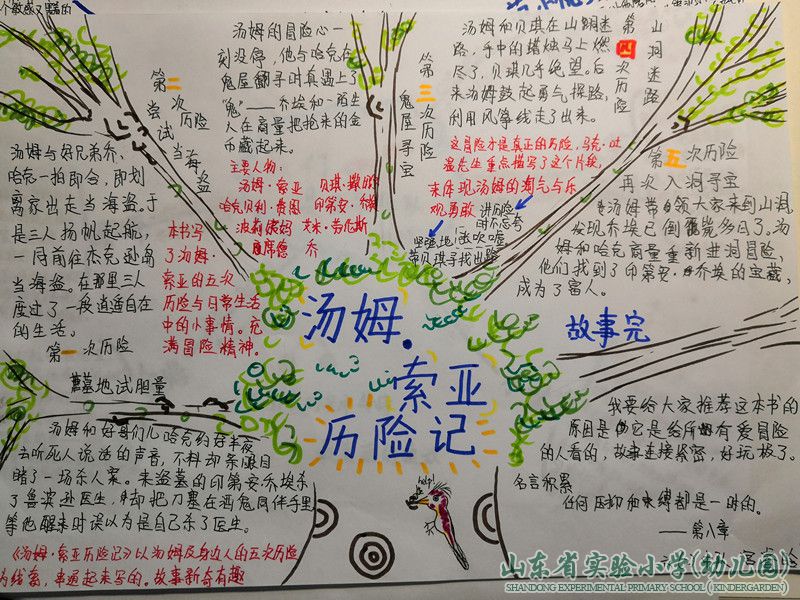 汤姆·索亚
历险记
第一次历险
墓地试胆量
汤姆和好哥们儿哈克约好半夜
去听死人说话的声音，不料却亲眼目
睹了一场杀人案。来盗墓的印第安乔埃杀
了鲁滨逊医生，却把刀塞在酒鬼同伴手里
等他醒来时误以为是自己杀了医生。
《汤姆·索亚历险记》以汤姆及身边人的五次历险
为线索，串通起来写的。故事新奇有趣
第二次历险
尝试当海盗
汤姆与好兄弟乔、
哈克一拍即合，即划
离家出走当海盗。于
是三人扬帆起航，
一同前往杰克逊岛
当海盗。在那里三人
度过了一段逍遥自在
的生活。
本书写
了汤姆·
索亚的五次
历险与日常生活
中的小事情。充
满冒险精神。
第三次历险
鬼屋寻宝
汤姆的冒险心一
刻没停，他与哈克在
鬼屋翻子时真遇上了
“鬼”——乔埃和一陌生
人在商量把抢来的金
币藏起来。
主要人物：
汤姆·索亚 贝琪·撒切尔
哈克贝利·费恩 印第安·乔埃
波莉姨妈 艾米·劳伦斯
席德 乔
第四次历险
山洞迷路
汤姆和贝琪在山洞迷
路，手中的蜡烛马上燃
尽了，贝琪几乎绝望。后
来汤姆鼓起勇气探路，
利用风筝线走了出来。
这冒险才是真正的历险，马克·吐
温先生重点描写了这个片段，
来体现汤姆的淘气与乐
观勇敢
进历险
时不忘夸
张吹嘘
坚强地
带贝琪寻找出路
第五次历险
再次入洞寻宝
汤姆带领大家来到山洞，
发现乔埃已倒毙多日了。汤
姆和哈克商量重新进洞冒险，
他们找到了印第安·乔埃的宝藏，
成为了富人。
故事完
我要给大家推荐这本书的
原因是它是给所有爱冒险
的人看的，故事连接紧密，好玩极了。
名言积累
任何压抑和束缚都是一时的。
——第八章
help!
山东省实验小学(幼儿园)
SHANDONG EXPERIMENTAL PRIMARY SCHOOL ( KINDERGARDEN)